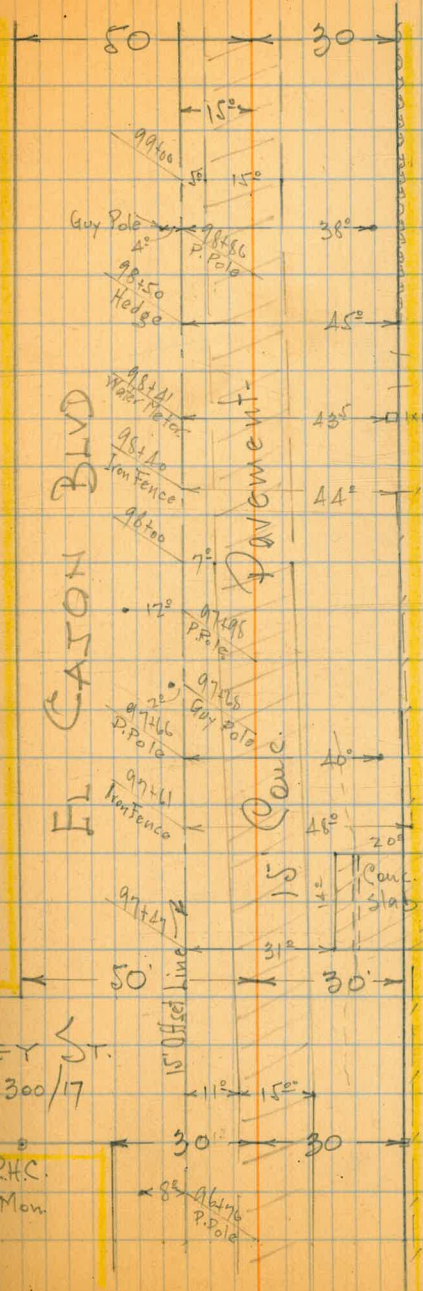 50 30
15⁰
99+00
5⁰ 15⁰
Guy Pole
4⁰
98+86
P. Pole
38⁰
98+50
Hedge
45⁰
98+41
Water Meter
43⁵
98+40
Iron Fence
44⁰
98+00
7⁰
12⁰
97+98
P. Pole
2⁰
97+68
Guy Pole
97+66
P. Pole
40⁰
97+61
Iron Fence
48⁰
20⁰
Conc.
Slab
14⁰
97+47
31⁰
EL CAJON BLVD
15' Conc. Pavement
15' Offset Line
50' 30'
ST.
300/17
11⁰ 15⁰⁰
30 30
Mon.
8⁰
96+76
P. Pole